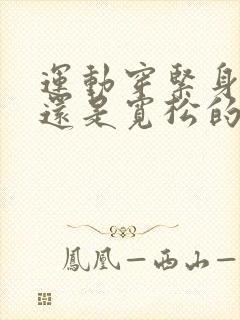 運動穿緊身
還是寬松的
鳳凰—西山—